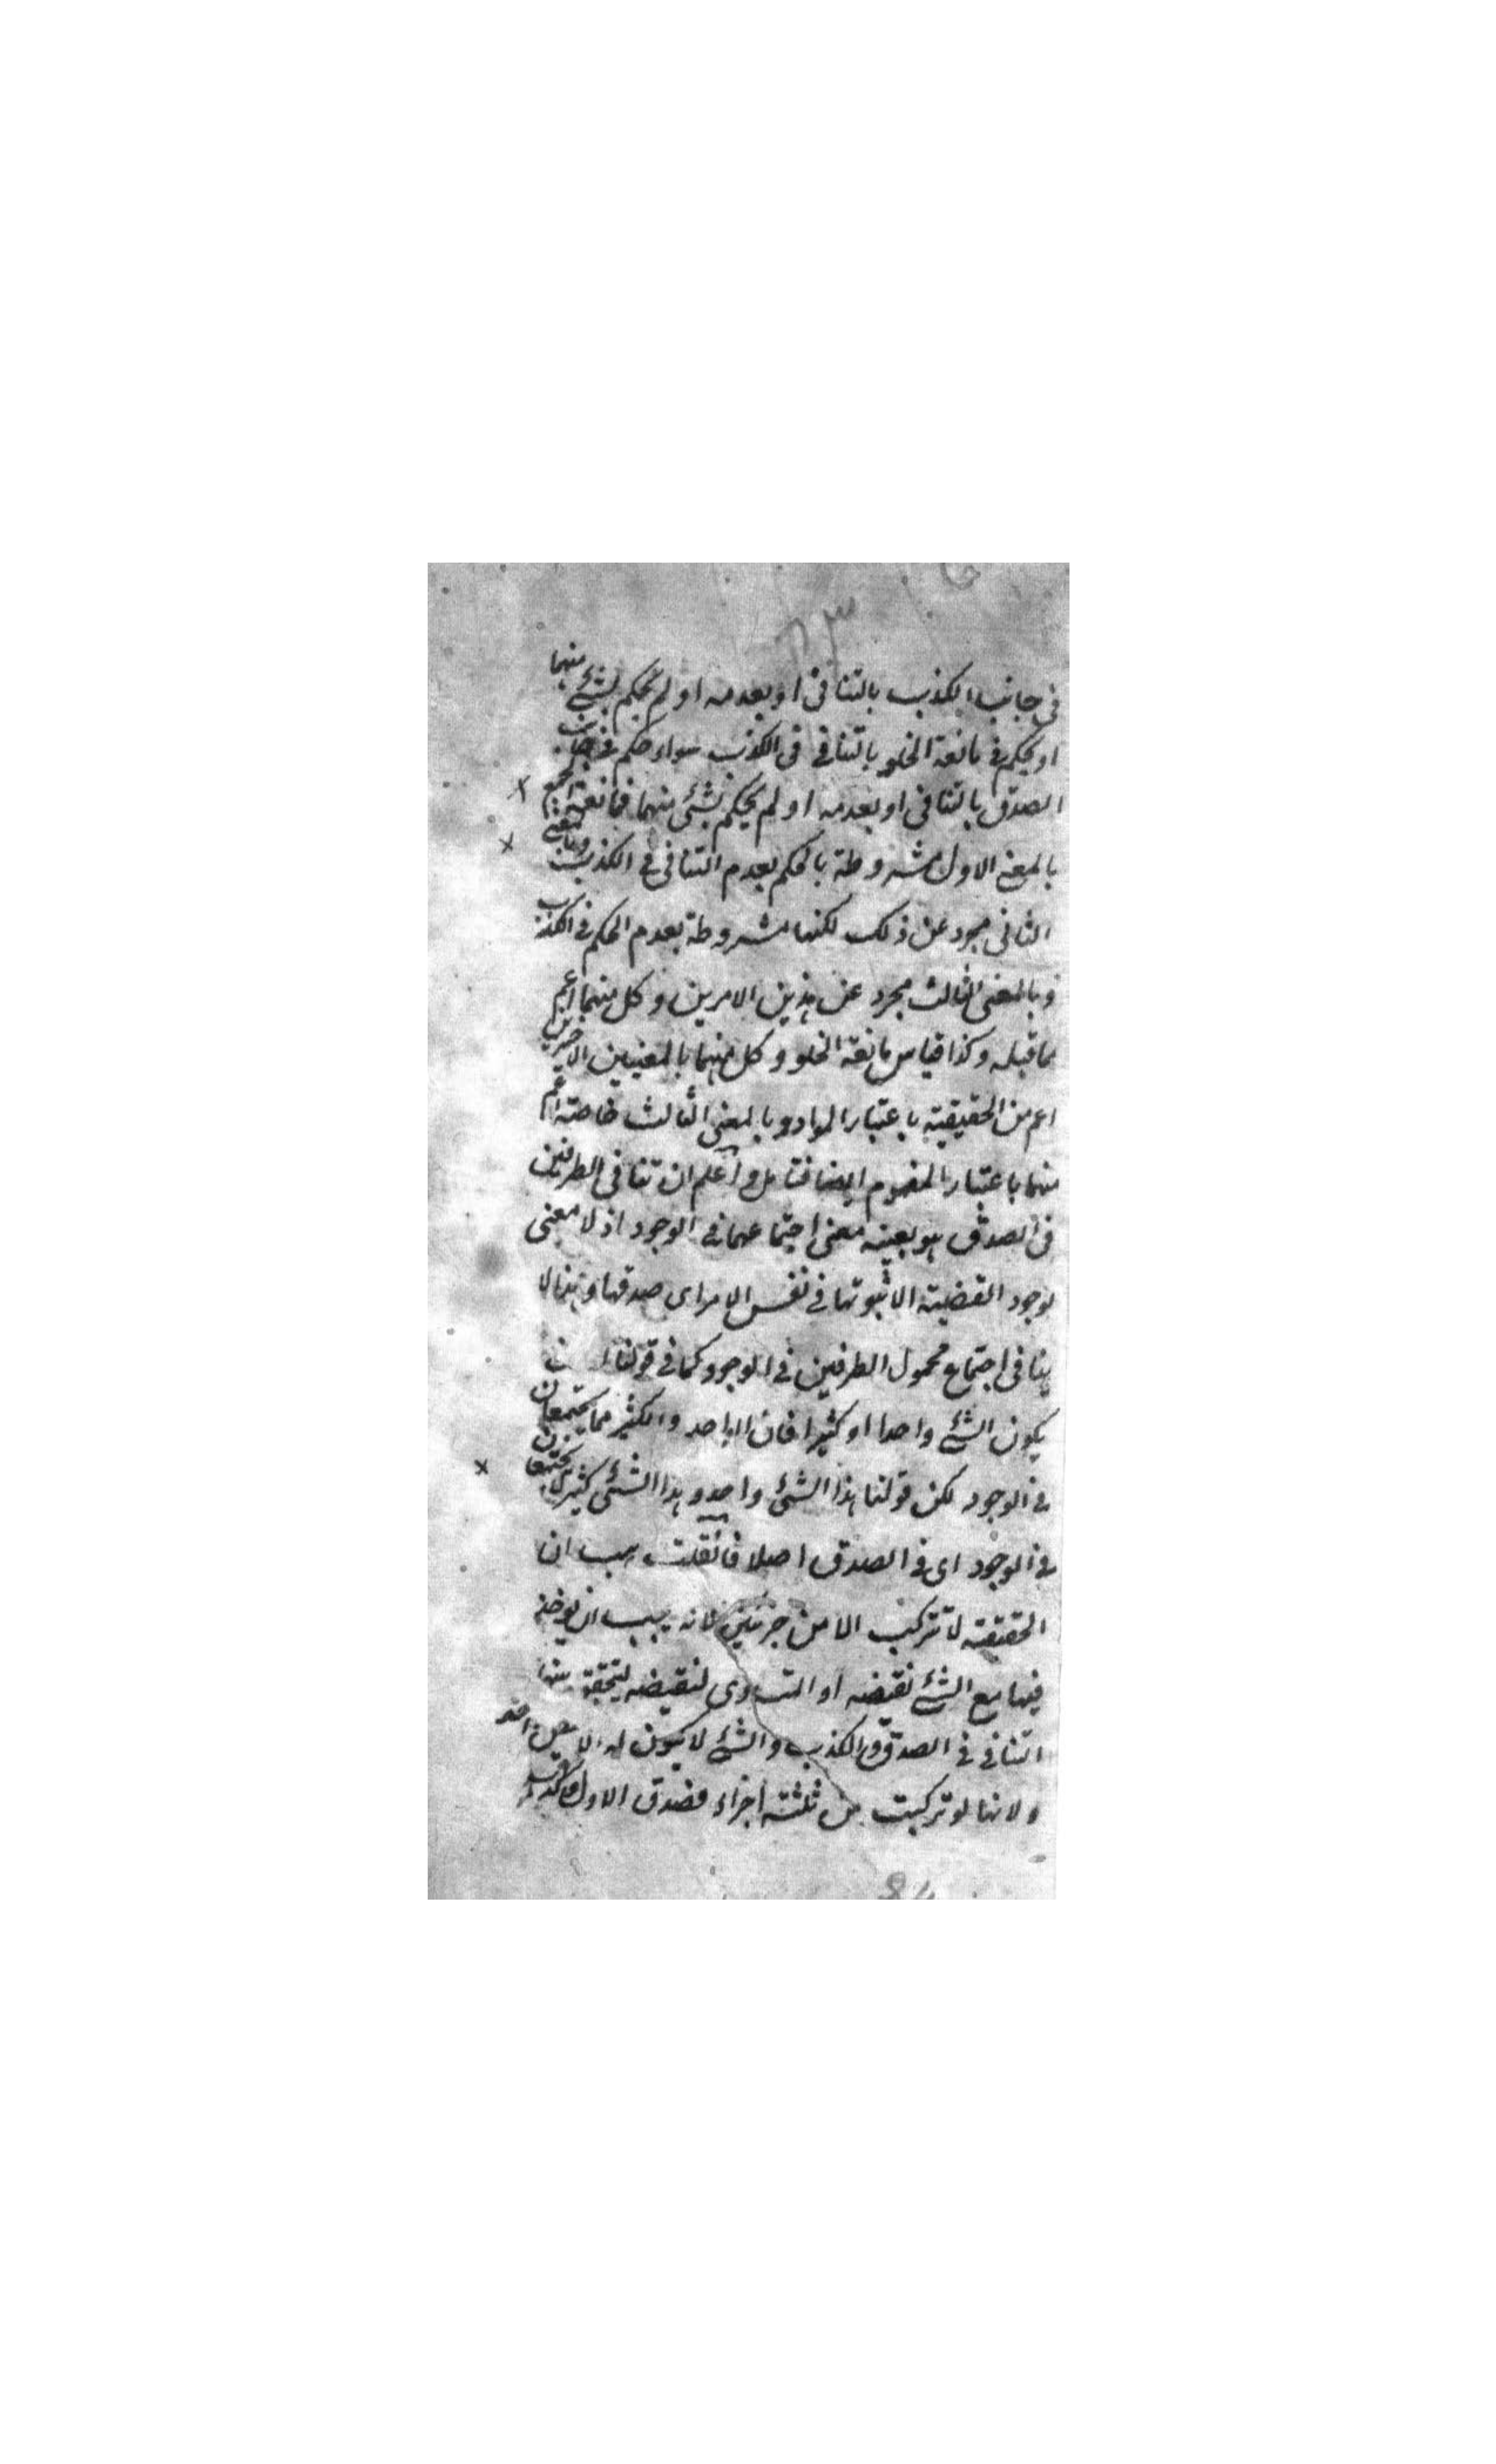 فى جانب الكذب بالتنافى او بعدمه او لم يحكم بشئ منهما
او يحكم فى مانعة الخلو بالتنافى فى الكذب سواء حكم فى جانب
الصدق بالتنافى او بعدمه او لم يحكم بشئ منهما فمانعة الجمع
بالمعنى الاول مشروطة بالحكم بعدم التنافى فى الكذب وبالمعنى
الثانى مجرد عن ذلك لكنها مشروطة بعدم الحكم فى الكذب
وبالمعنى الثالث مجرد عن هذين الامرين وكل منهما اعم
مما قبله وكذا قياس مانعة الخلو وكل منهما بالمعنيين الاخيرين
اعم من الحقيقية باعتبار المواد وبالمعنى الثالث خاصة اعم
منها باعتبار المفهوم ايضا فتامل واعلم ان تنافى الطرفين
فى الصدق هو بعينه معنى اجتماعهما فى الوجود اذ لا معنى
لوجود القضية الا ثبوتها فى نفس الامر اى صدقها وهذا لا
ينافى اجتماع محمول الطرفين فى الوجود كما فى قولنا
يكون الشئ واحدا او كثيرا فان الواحد والكثير مما يجتمعان
فى الوجود لكن قولنا هذا الشئ واحد وهذا الشئ كثير لا يجتمعان
فى الوجود اى فى الصدق اصلا فانقلت يجب ان
الحقيقية لا تتركب الا من جزئين لانه يجب ان يوخذ
فيها مع الشئ نقيضه او المساوى لنقيضه ليتحقق بينهما
التنافى فى الصدق والكذب والشئ لا يكون له الا نقيض واحد
ولانها لو تركبت من ثلثة اجزاء فصدق الاول